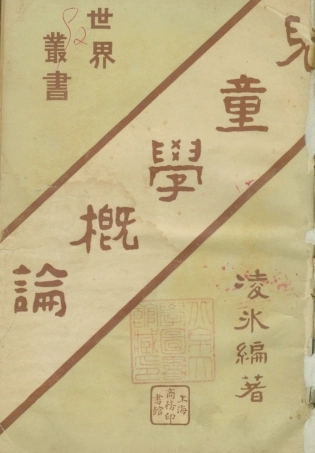 世界
叢書
兒童學概論
凌冰編著
上海
商務印
書館